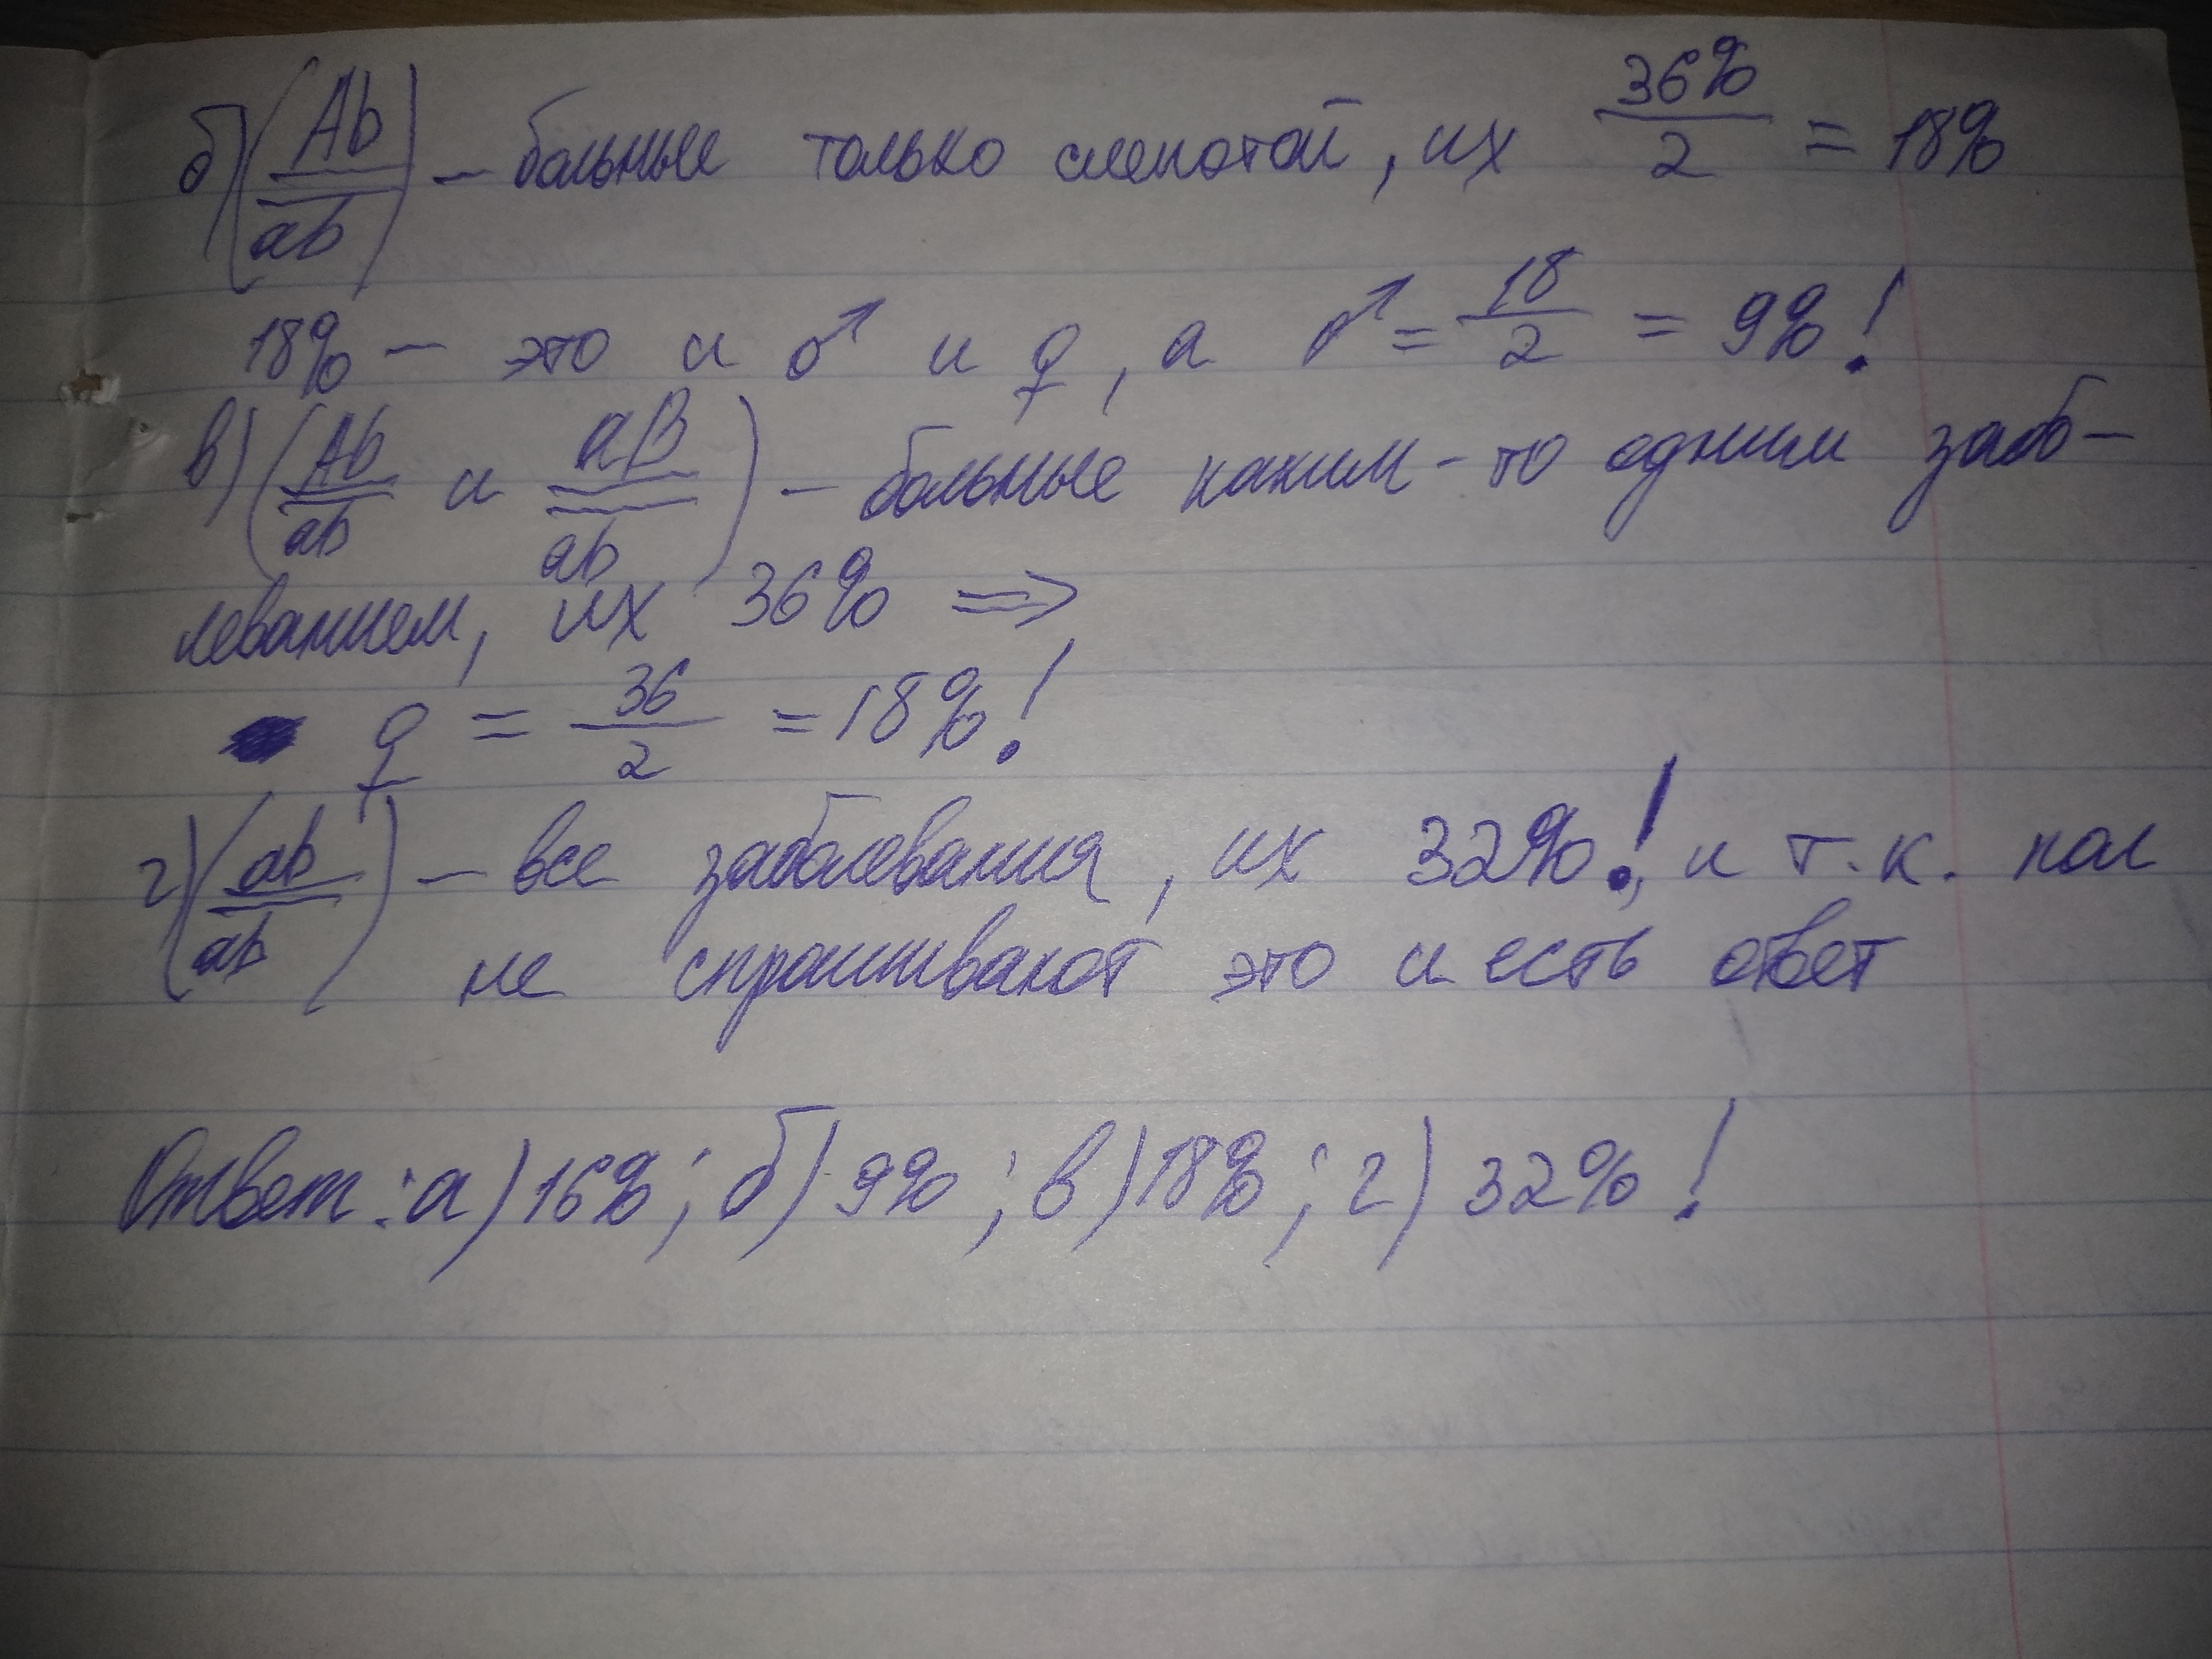 б) (Ab/ab) – больные только слепотой, их 36%/2 = 18%
18% – это и ♂ и ♀, а ♂ = 18/2 = 9%!
в) (Ab/ab и aB/ab) – больные каким-то одним забо-
леванием, их 36% ⇒
♀ = 36/2 = 18%!
г) (ab/ab) – все заболевания, их 32%!, и т.к. пол
не спрашивают это и есть ответ
Ответ: а) 16%; б) 9%; в) 18%; г) 32%!